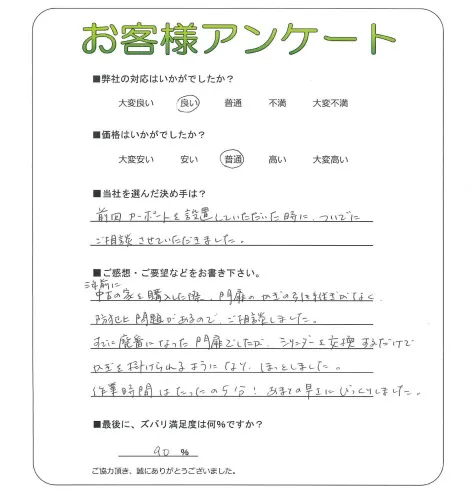 お客様アンケート
■弊社の対応はいかがでしたか？
大変良い 良い 普通 不満 大変不満
■価格はいかがでしたか？
大変安い 安い 普通 高い 大変高い
■当社を選んだ決め手は？
前回カーポートを設置していただいた時に、ついでに
ご相談させていただきました。
■ご感想・ご要望などをお書き下さい。
3年前に
中古の家を購入した際、門扉のかぎの引き継ぎがなく、
防犯上問題があるので、ご相談しました。
すでに廃番になった門扉でしたが、シリンダーを交換するだけで
かぎを掛けられるようになり、ほっとしました。
作業時間はたったの5分！あまりの早さにびっくりしました。
■最後に、ズバリ満足度は何％ですか？
90 ％
ご協力頂き、誠にありがとうございました。